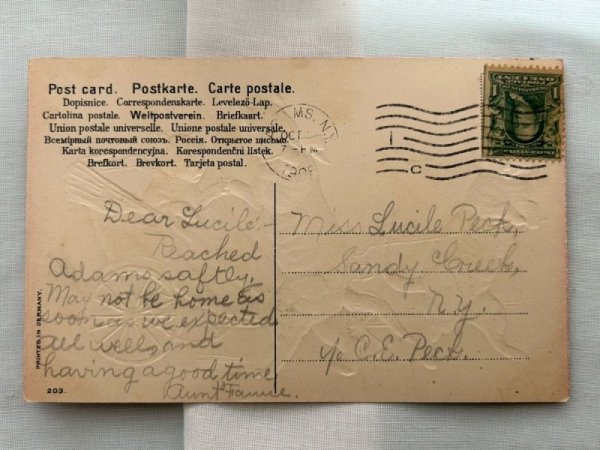 Post card. Postkarte. Carte postale.
Dopisnice. Correspondenskarte. Levelező-Lap.
Cartolina postale. Weltpostverein. Briefkaart.
Union postale universelle. Unione postale universale.
Всемірный почтовый союзъ. Россія. Открытое письмо.
Karta korespondencyjna. Korespondenční lístek.
Brefkort. Brevkort. Tarjeta postal.
ADAMS, N.Y.
OCT
PM
1909
C
1
Dear Lucile:-
Reached
Adams saftly,
May not be home as
soon as we expected
all well, and
having a good time
Aunt Fannie.
Miss Lucile Peck,
Sandy Creek,
N.Y.
c/o C.E. Peck.
PRINTED IN GERMANY.
203.